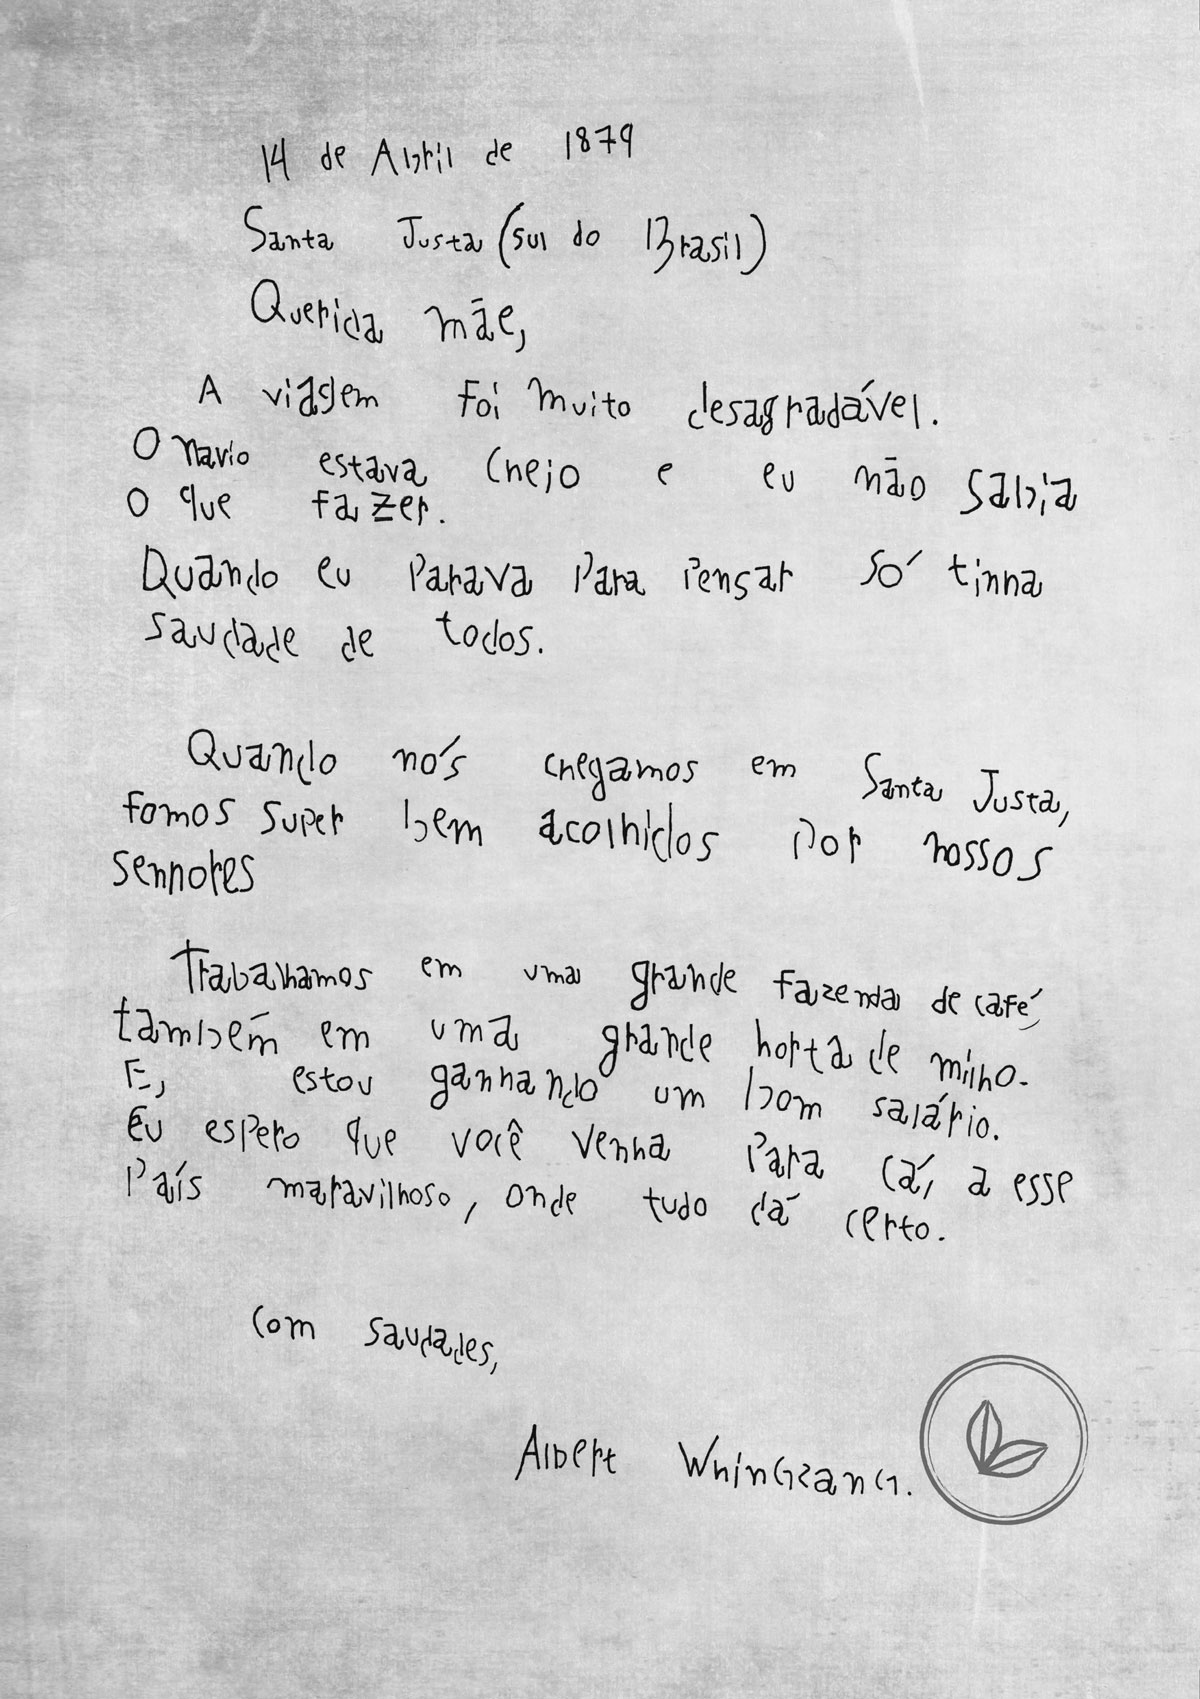 14 de Abril de 1879
Santa Justa (sul do Brasil)
Querida mãe,
A viagem foi muito desagradável.
O navio estava cheio e eu não sabia
o que fazer.
Quando eu parava para pensar só tinha
saudade de todos.
Quando nós chegamos em Santa Justa,
fomos super bem acolhidos por nossos
senhores
Trabalhamos em uma grande fazenda de café,
também em uma grande horta de milho.
E, estou ganhando um bom salário.
Eu espero que você venha para cá, a esse
país maravilhoso, onde tudo dá certo.
Com saudades,
Albert